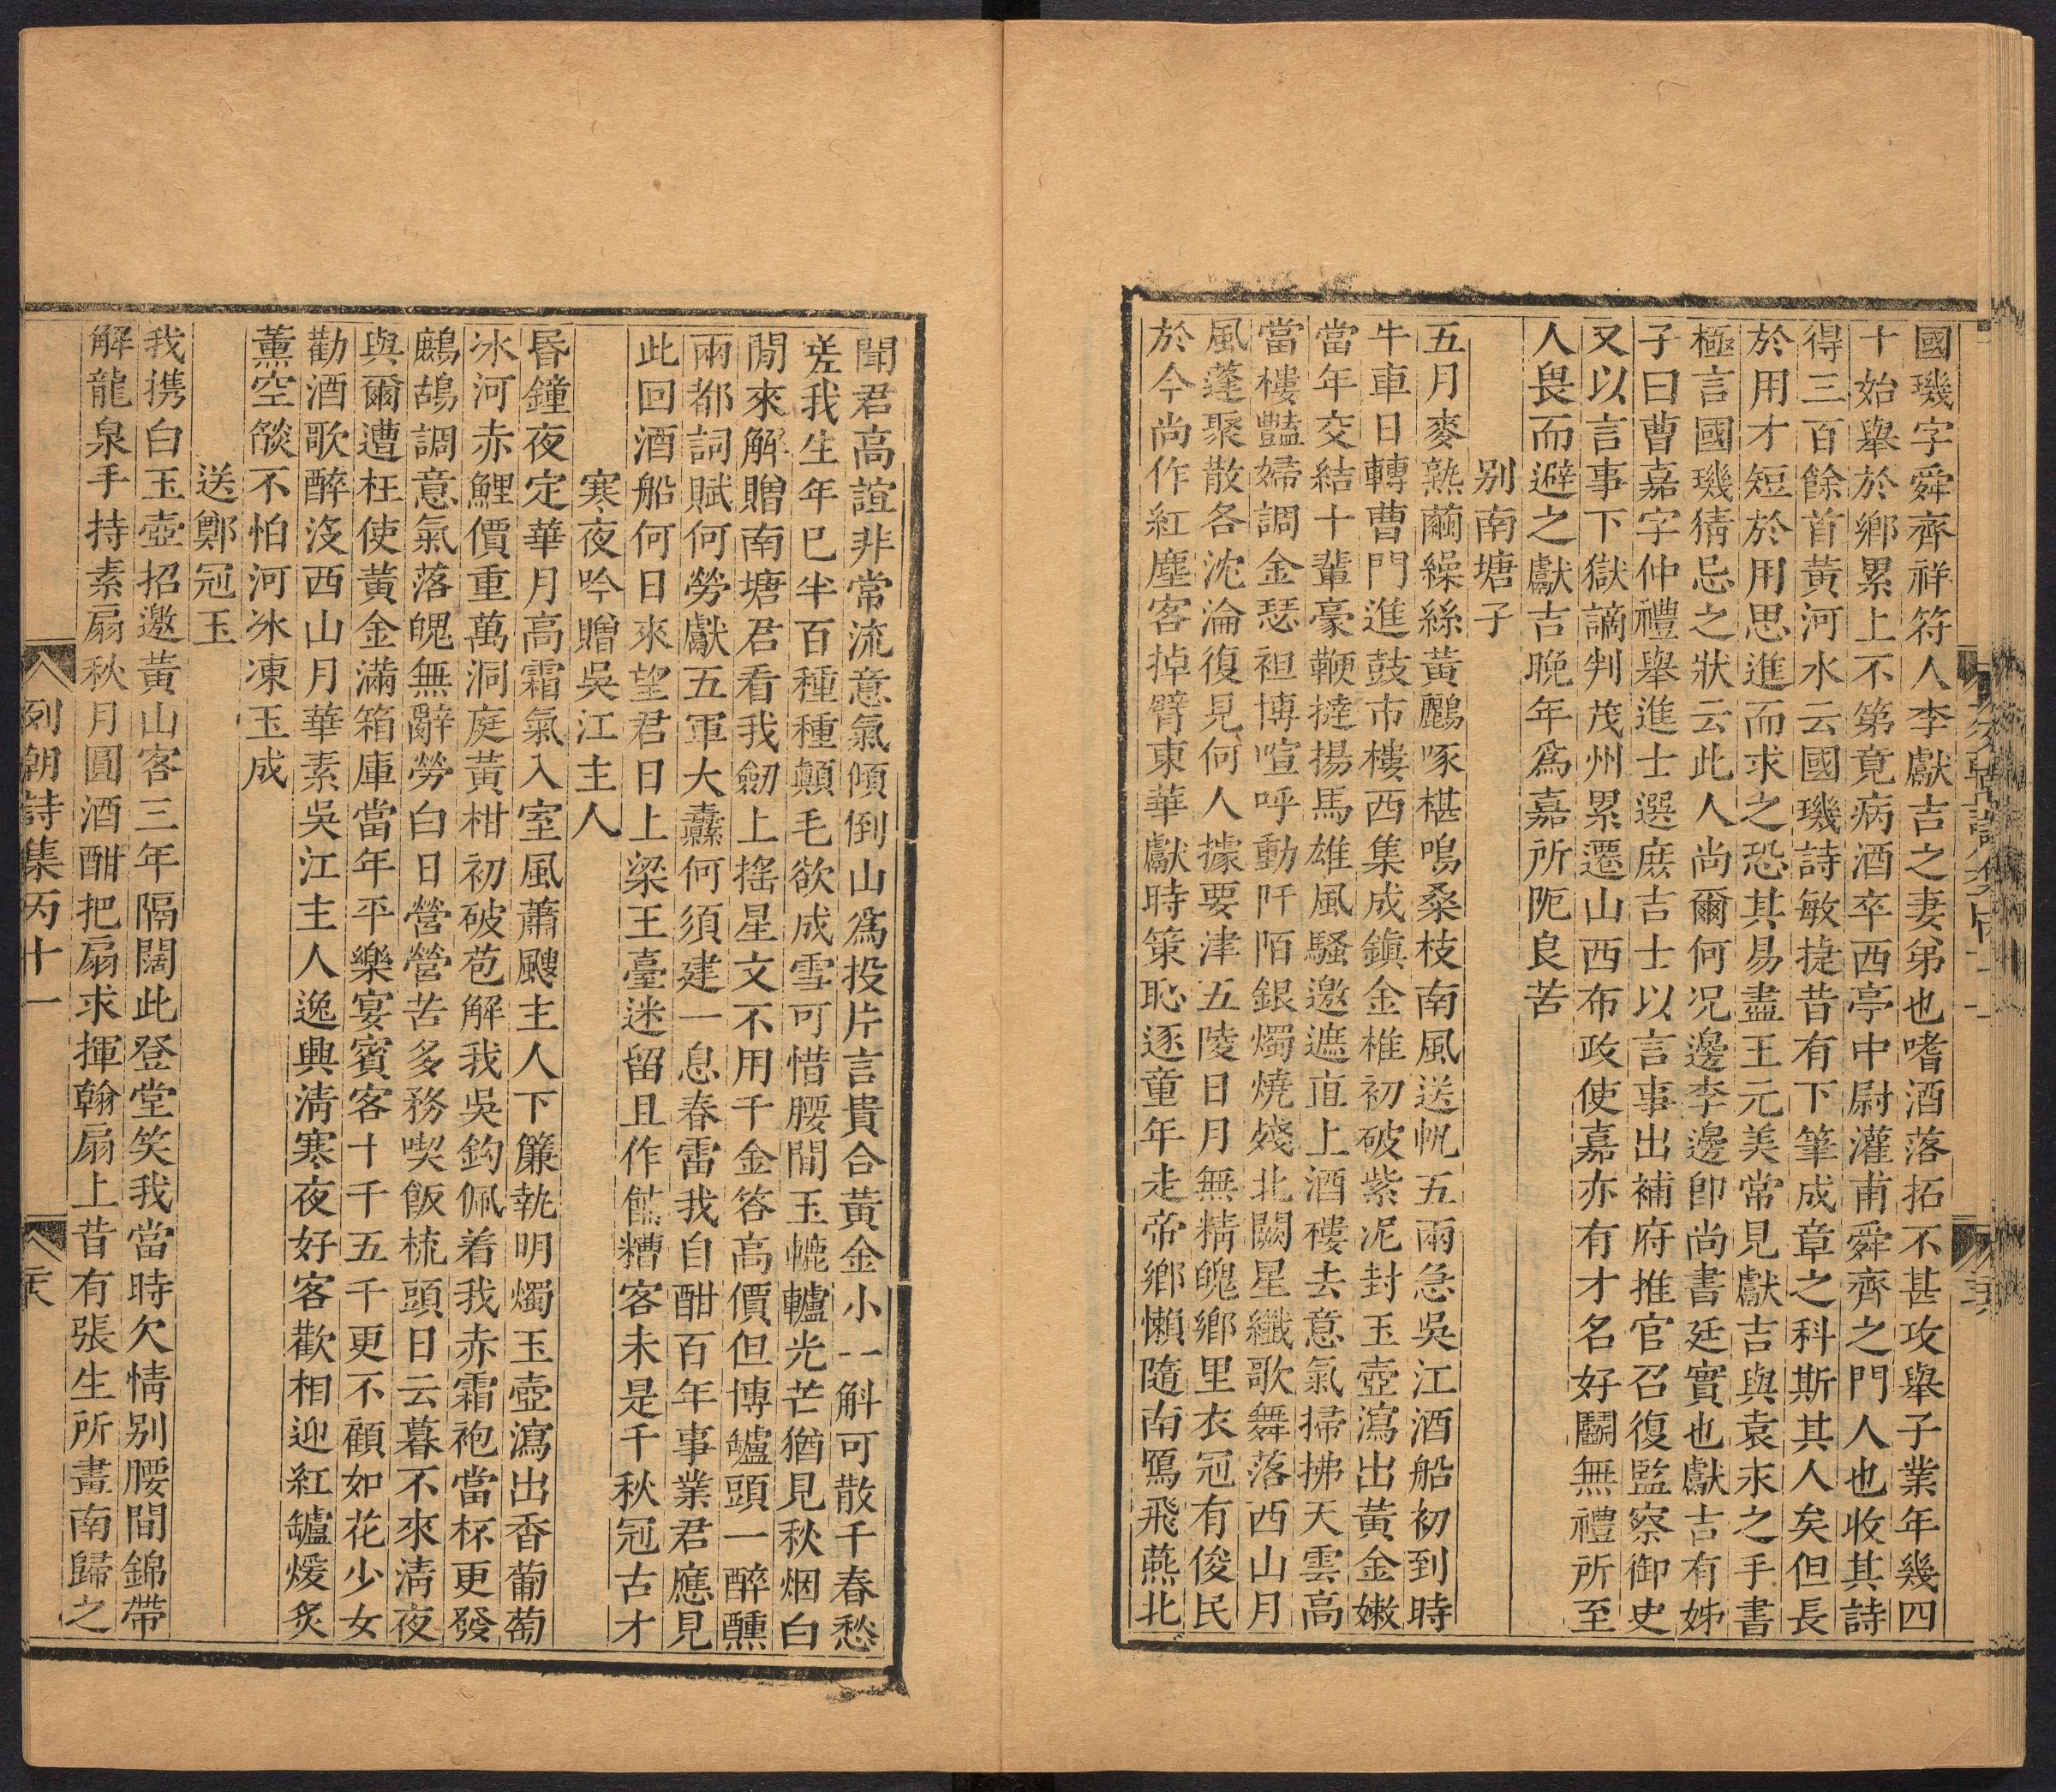 國璣字舜齊祥符人李獻吉之妻弟也嗜酒落拓不甚攻舉子業年幾四
十始舉於鄉累上不第竟病酒卒西亭中尉灌甫舜齊之門人也收其詩
得三百餘首黃河水云國璣詩敏捷昔有下筆成章之科斯其人矣但長
於用才短於用思進而求之恐其易盡王元美常見獻吉與袁永之手書
極言國璣猜忌之狀云此人尚爾何况邊李邊卽尚書廷實也獻吉有姊
子曰曹嘉字仲禮舉進士選庶吉士以言事出補府推官召復監察御史
又以言事下獄謫判茂州累遷山西布政使嘉亦有才名好鬬無禮所至
人畏而避之獻吉晚年爲嘉所阨良苦
別南塘子
五月麥熟繭繰絲黃鸝啄椹鳴桑枝南風送帆五兩急吳江酒船初到時
牛車日轉曹門進鼓市樓西集成鎭金椎初破紫泥封玉壺瀉出黃金嫩
當年交結十輩豪鞭撻揚馬雄風騷邀遮直上酒樓去意氣掃拂天雲高
當樓豔婦調金瑟袒博喧呼動阡陌銀燭燒殘北闕星纖歌舞落西山月
風蓬聚散各沈淪復見何人據要津五陵日月無精魄鄉里衣冠有俊民
於今尚作紅塵客掉臂東華獻時策恥逐童年走帝鄉懶隨南鴈飛燕北
聞君高誼非常流意氣傾倒山爲投片言貴合黃金小一斛可散千春愁
嗟我生年已半百種種顛毛欲成雪可惜腰間玉轆轤光芒猶見秋烟白
閒來解贈南塘君看我劒上搖星文不用千金答高價但博罏頭一醉醺
兩都詞賦何勞獻五軍大纛何須建一息春雷我自酣百年事業君應見
此回酒船何日來望君日上梁王臺迷留且作餔糟客未是千秋冠古才
寒夜吟贈吳江主人
昬鐘夜定華月高霜氣入室風蕭颼主人下簾執明燭玉壺瀉出香葡萄
冰河赤鯉價重萬洞庭黃柑初破苞解我吳鈎佩着我赤霜袍當杯更發
鷓鴣調意氣落魄無辭勞白日營營苦多務喫飯梳頭日云暮不來淸夜
與爾遭枉使黃金滿箱庫當年平樂宴賓客十千五千更不顧如花少女
勸酒歌醉沒西山月華素吳江主人逸興淸寒夜好客歡相迎紅罏煖炙
薰空燄不怕河冰凍玉成
送鄭冠玉
我携白玉壺招邀黃山客三年隔闊此登堂笑我當時欠情別腰間錦帶
解龍泉手持素扇秋月圓酒酣把扇求揮翰扇上昔有張生所畫南歸之
列朝詩集丙十一